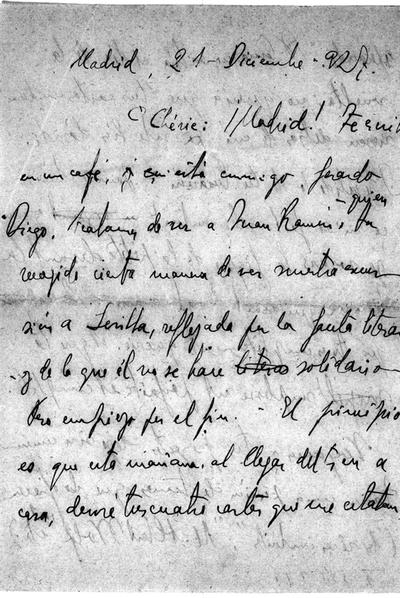 Madrid, 21 - Diciembre - 927.
Chérie: ¡Madrid! Te escribo
en un café, y está conmigo Gerardo
Diego, tratamos de ver a Juan Ramón, quien ha
recogido cierta manera de ver nuestra excur
sión a Sevilla, reflejada por la gaceta literaria
y de lo que él no se hace solidario
Pero empiezo por el fin. - El principio
es que esta mañana, al llegar del tren a
casa, devoré tres cuatro cartas que me estaban